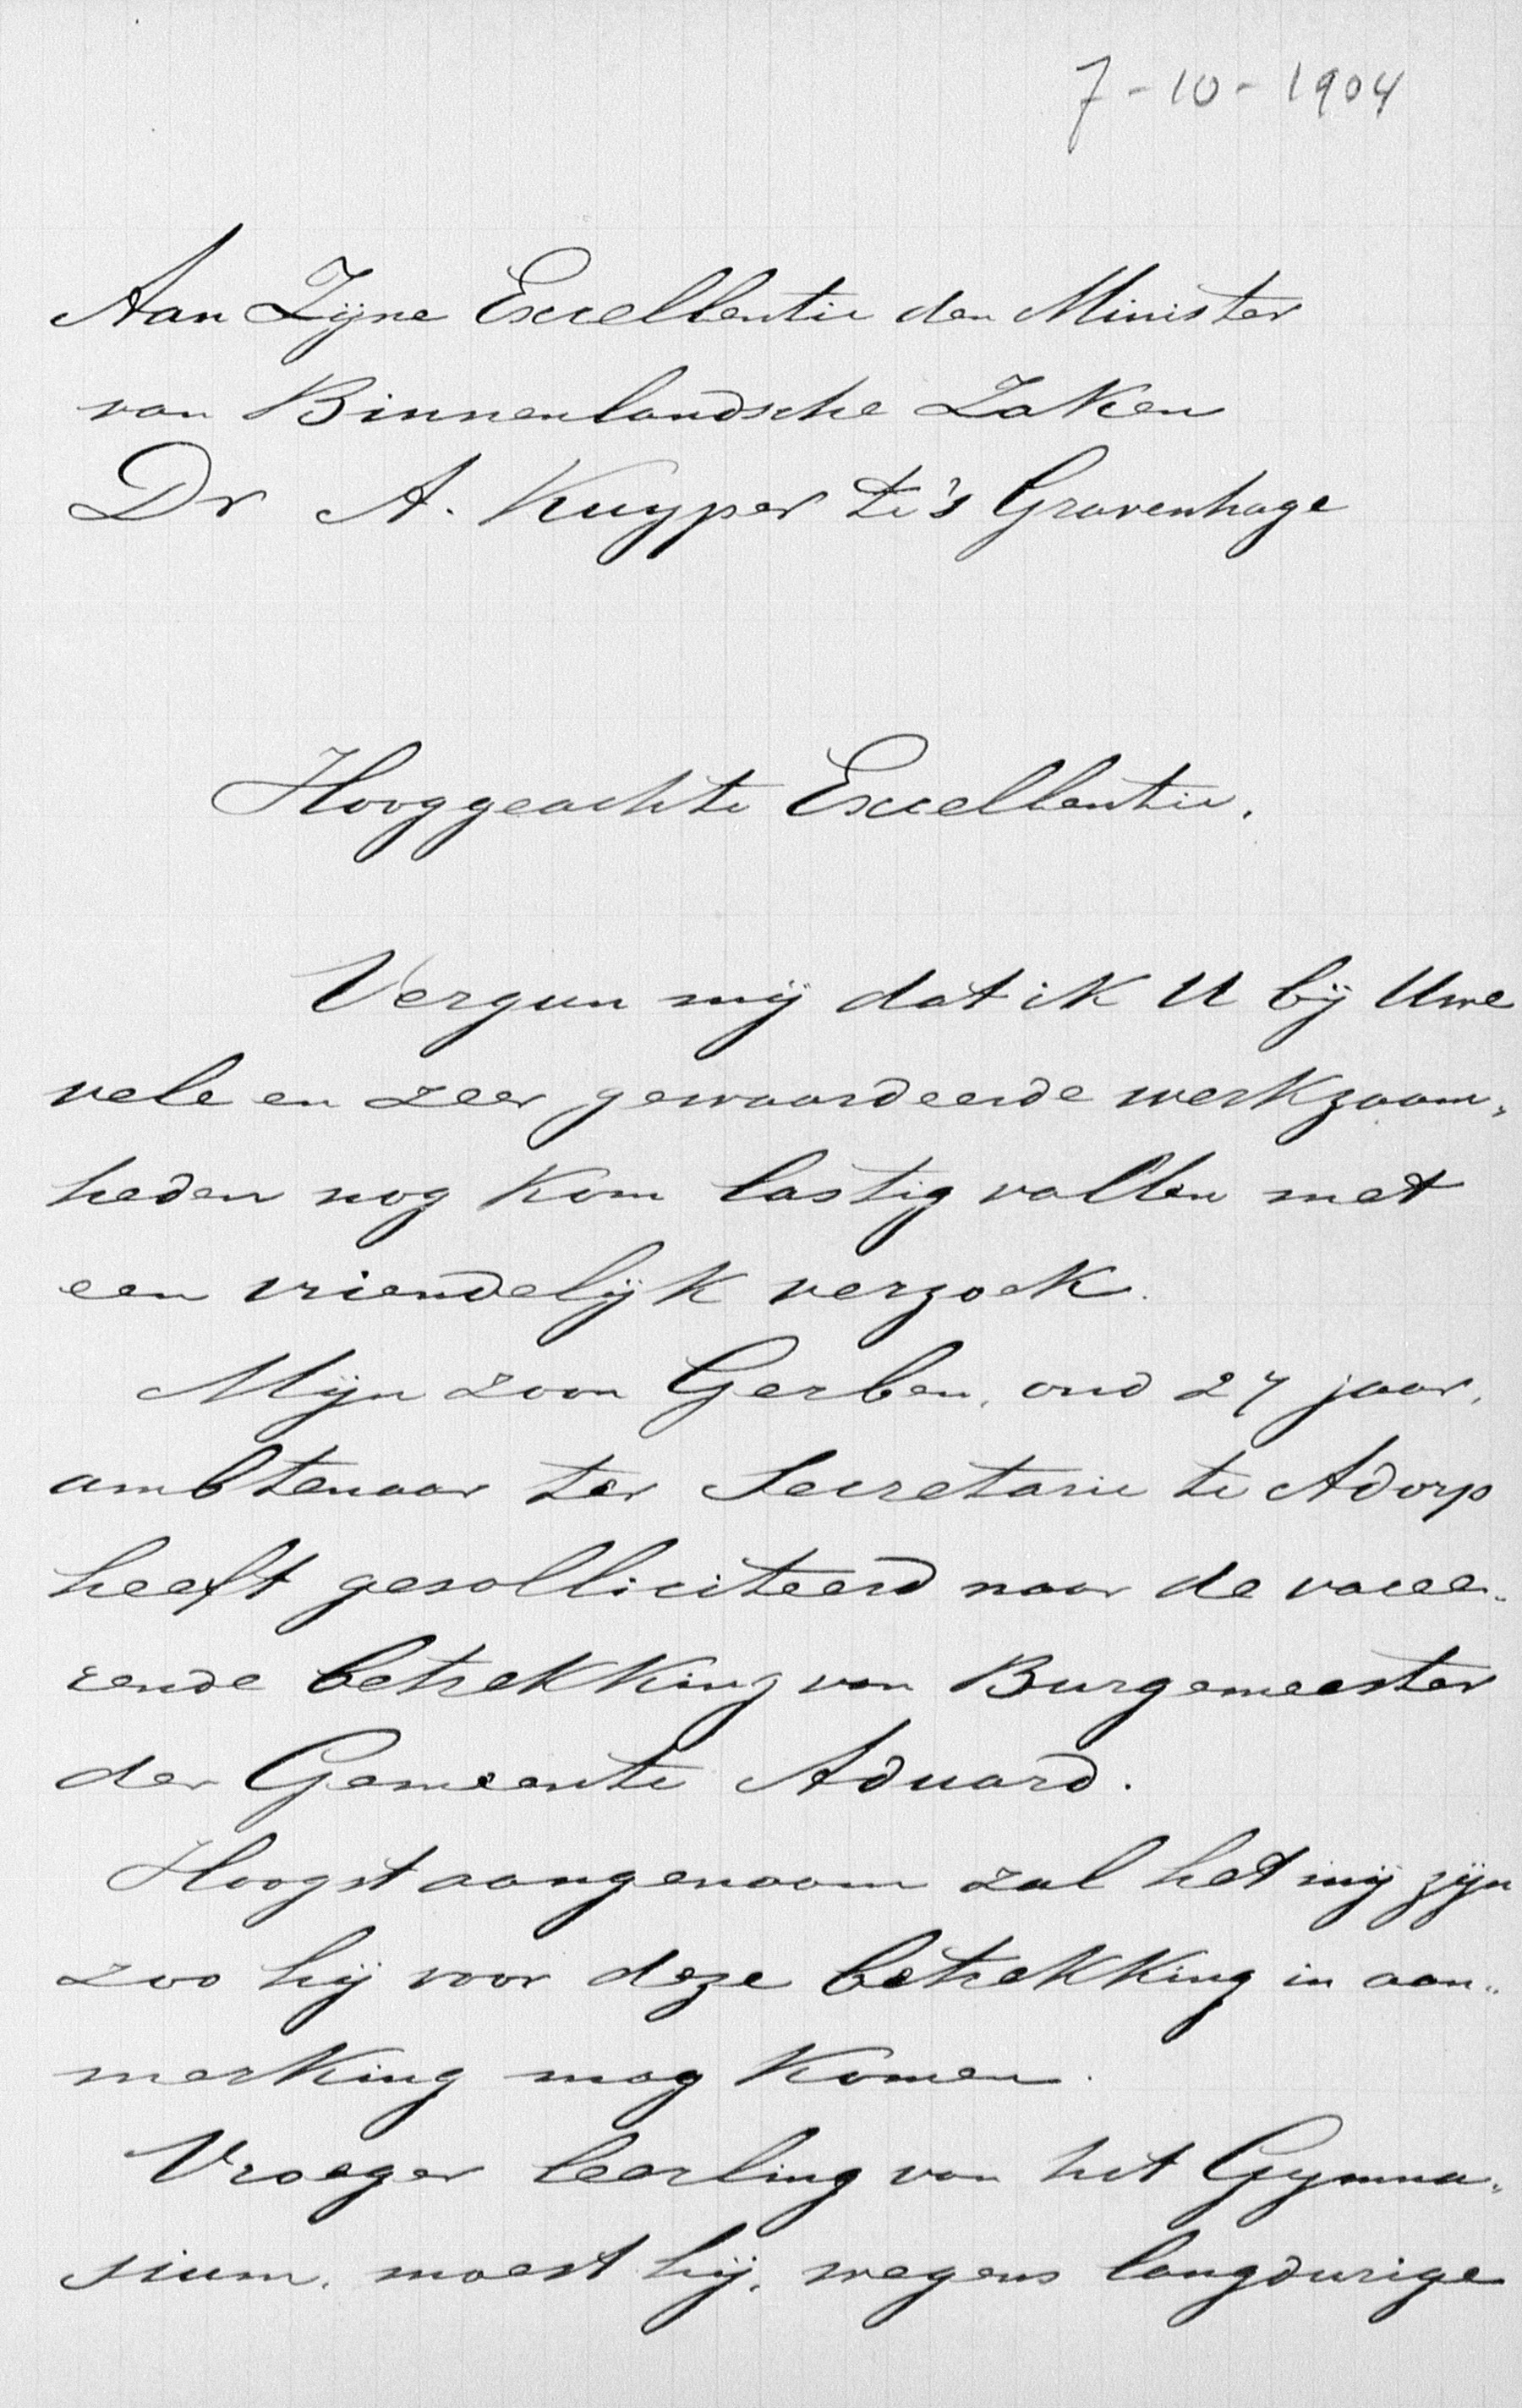 7-10-1904
Aan Zijne Excellentie den Minister
van Binnenlandsche Zaken
Dr A. Kuyper te 's Gravenhage
Hooggeachte Excellentie.
Vergun mij dat ik U bij Uwe
vele en zeer gewaardeerde werkzaam„
heden nog kom lastig vallen met
een vriendelijk verzoek.
Mijn zoon Gerben, oud 27 jaar,
ambtenaar ter Secretarie te Adorp
heeft gesolliciteerd naar de vacee„
rende betrekking van Burgemeester
der Gemeente Aduard.
Hoogst aangenaam zal het mij zijn
zoo hij voor deze betrekking in aan„
merking mag komen.
Vroeger leerling van het Gymna„
sium, moest hij, wegens langdurige